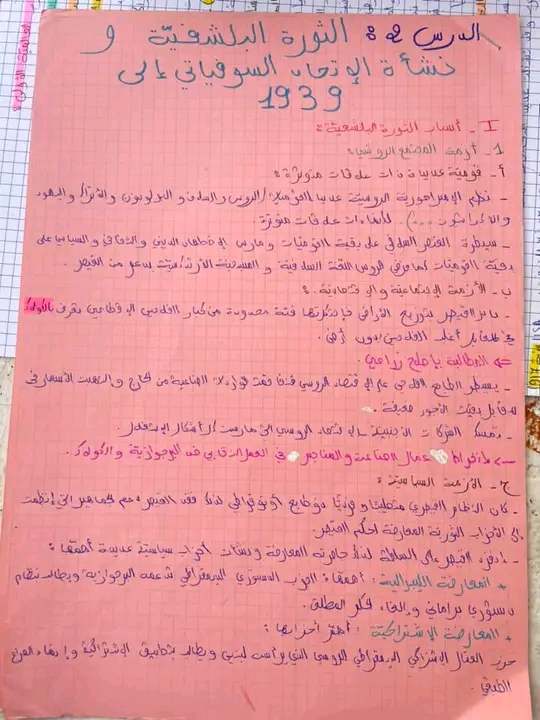 الدرس 2: الثورة البلشفيّة و
نشأة الإتحاد السوفياتي إلى
1939
I - أسباب الثورة البلشفيّة:
1- أزمة المجتمع الروسي:
أ- قومية عديدة ذات علاقات متوترة:
- تظم الإمبراطورية الروسية عديد القوميات (الروس والسلاف و البولونيون والأتراك واليهود
والأكرانيون ...). ذات علاقات متوترة
- سيطرة العنصر السلافي على بقية القوميات ومارس الإضطهاد الديني والثقافي والسياسي على
بقية القوميات كما فرض الروس اللغة السلافية و المسيحية الأرثذكسية بدعم من القيصر.
ب- الأزمة الإجتماعية والإقتصادية:
- القيصر بتوزيع الأراضي فئة محدودة من كبار الفلاحين الإقطاعيين تعرف بالكولاك
في المقابل أغلب الفلاحين بدون أرض.
=> المطالبة بإصلاح زراعي
- يسيطر الطابع الفلاحي على الإقتصاد الروسي الصناعية من الخارج والتهبت الأسعار في
مقابل بقيت الأجور ضعيفة.
- تمسك الشركات الأجنبية بالإقتصاد الروسي التي مارست أشكال الإستغلال.
-> انخراط عمال الصناعة والمناجم في العمل النقابي ضد البرجوازية والكولاك.
ج- الأزمة السياسية:
- كان النظام القيصري مطلقا و فرديا ذو طابع أوتوقراطي لذلك فقد القيصر دعم الجماهير التي إنظمت
إلى الأحزاب الثورية المعارضة لحكم القيصر.
- القيصر على السلطة لذلك المعارضة و نشأت أحزاب سياسية عديدة أهمها:
+ المعارضة الليبرالية: أهمها: الحزب الدستوري الديمقراطي تدعمه البرجوازية ويطالب بنظام
دستوري برلماني وإلغاء الحكم المطلق.
+ المعارضة الإشتراكية: أهم أحزابها:
حزب العمال الإشتراكي الديمقراطي الروسي الذي يرأسه لينين ويطالب بتطبيق الإشتراكية و إنهاء الصراع
الطبقي.